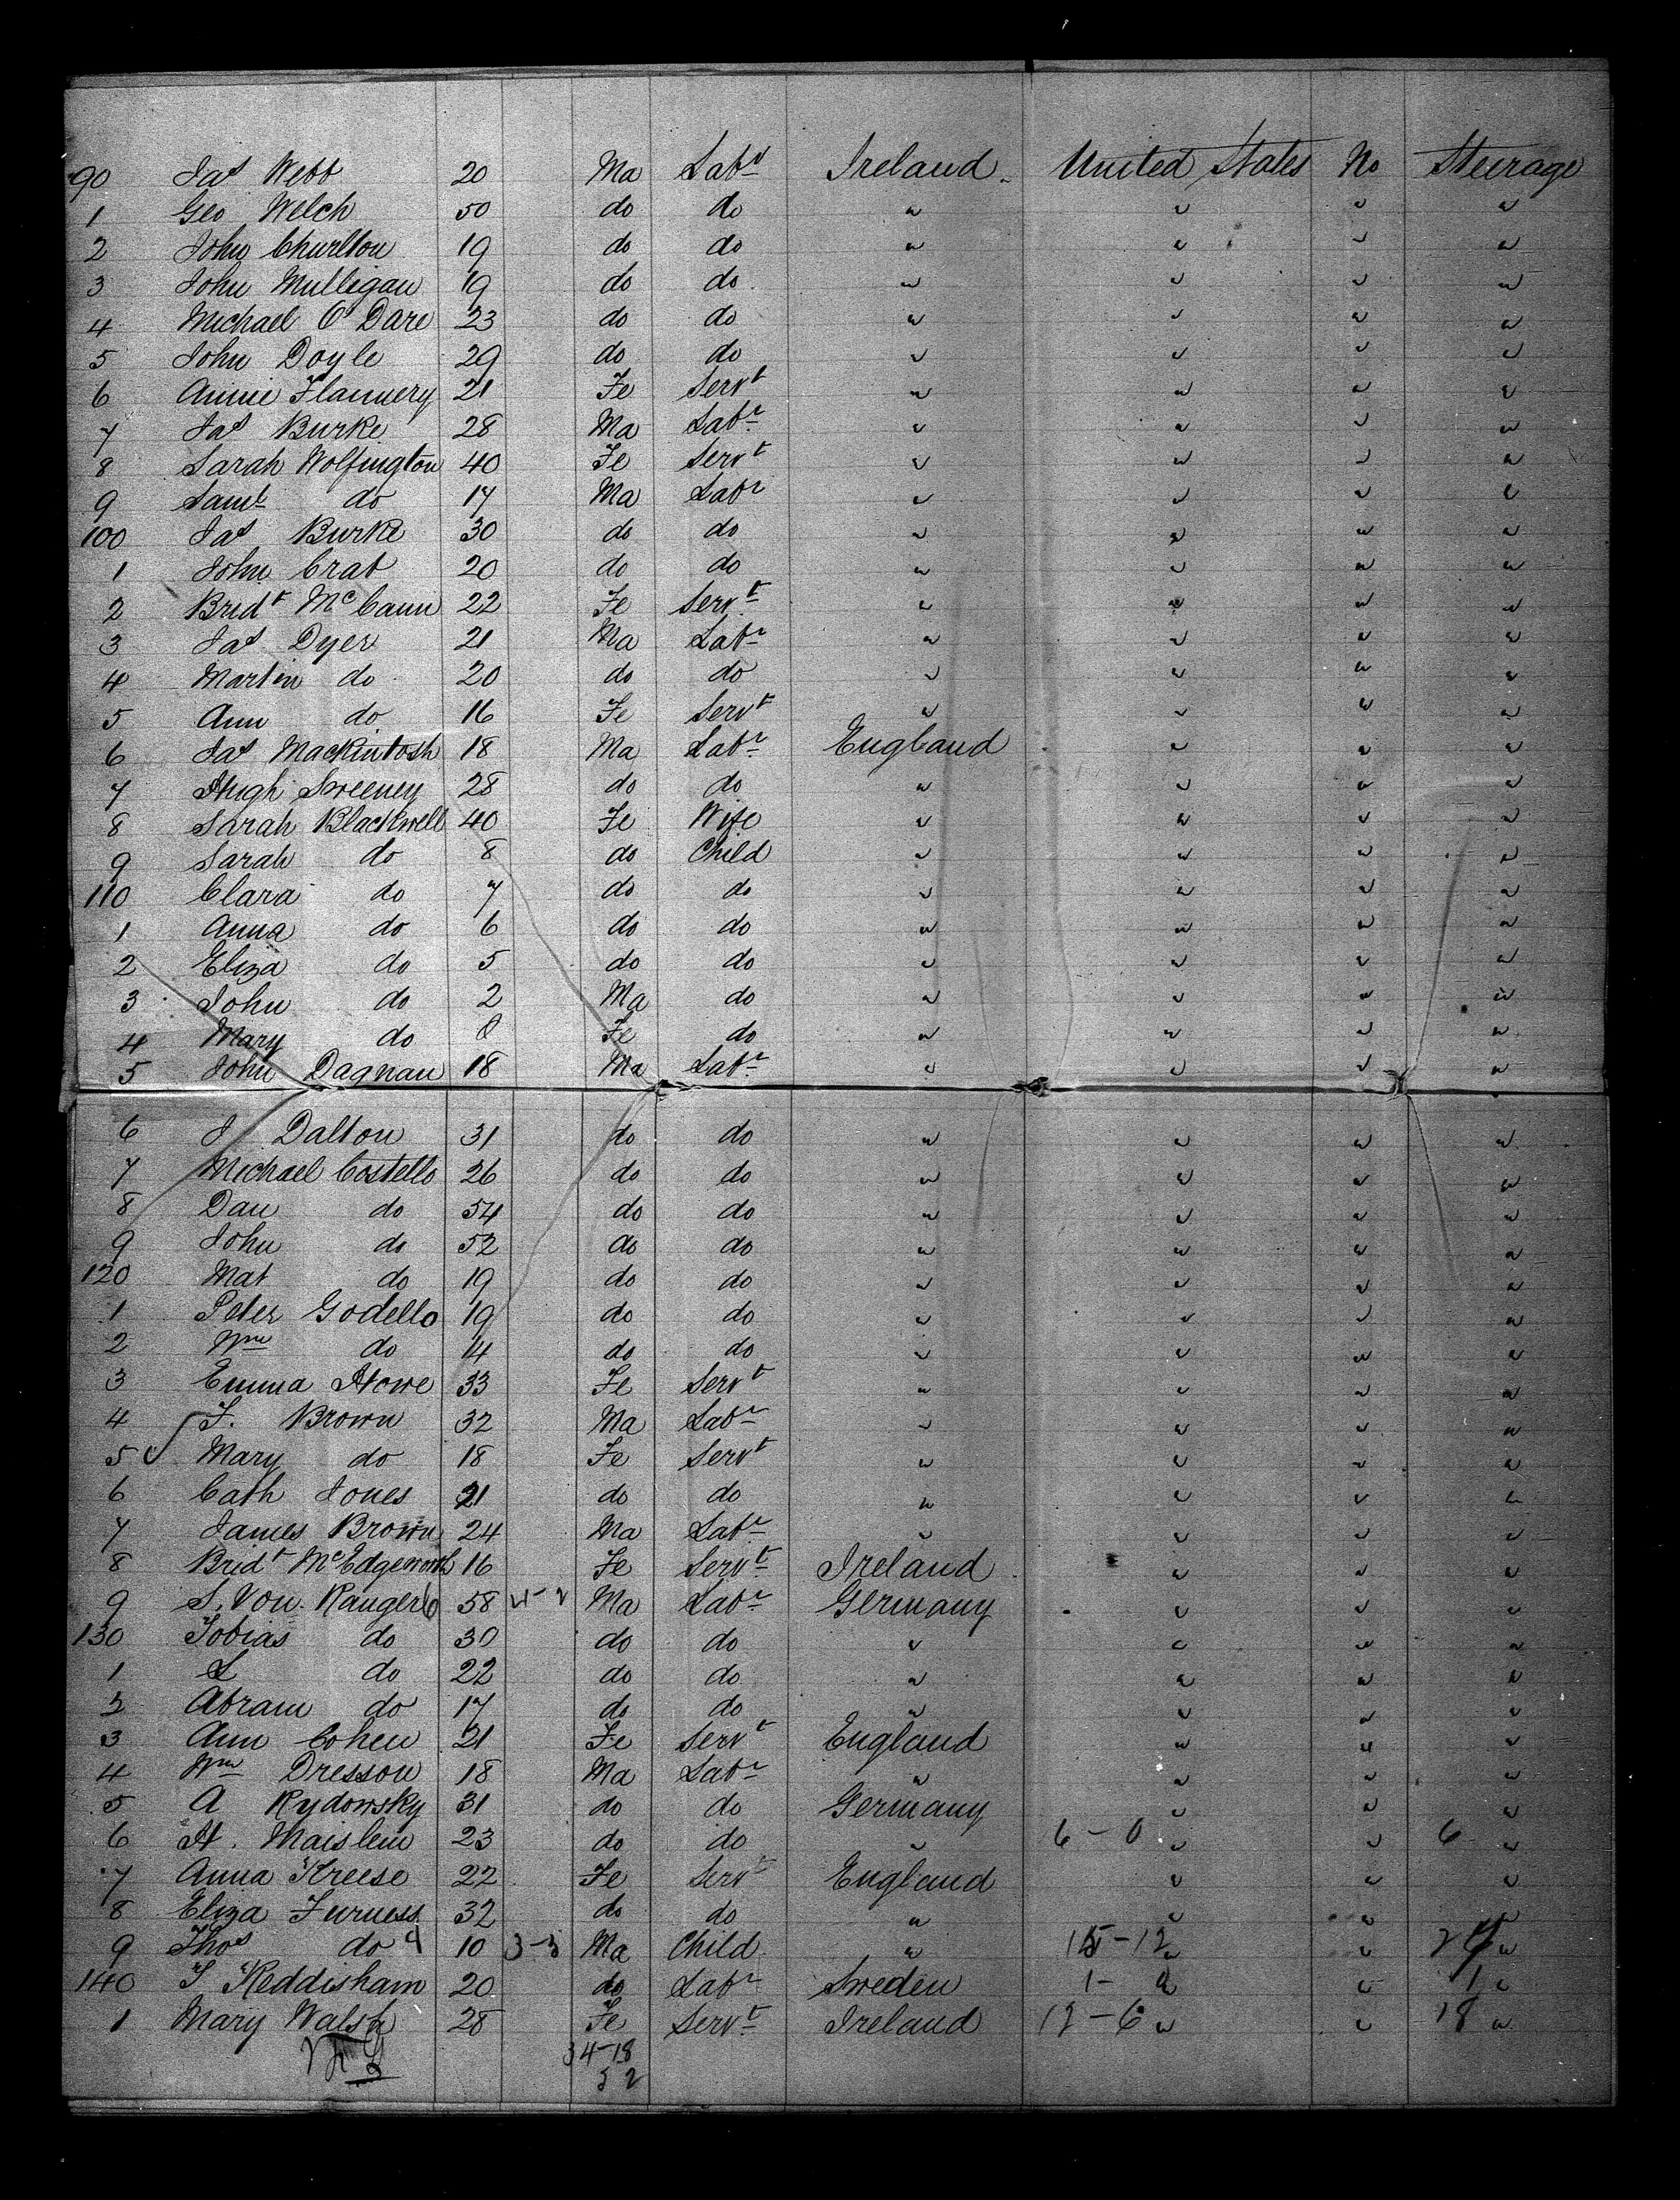 90 Jas Webb 20 Ma Labr Ireland United States No Steerage
1 Geo Welch 50 do do " " " "
2 John Churlton 19 do do " " " "
3 John Mulligan 19 do do " " " "
4 Michael O'Dare 23 do do " " " "
5 John Doyle 29 do do " " " "
6 Annie Flannery 21 Fe Servt " " " "
7 Jas Burke 28 Ma Labr " " " "
8 Sarah Wolfington 40 Fe Servt " " " "
9 Saml do 17 Ma Labr " " " "
100 Jas Burke 30 do do " " " "
1 John Crab 20 do do " " " "
2 Bridt McCann 22 Fe Servt " " " "
3 Jas Dyer 21 Ma Labr " " " "
4 Martin do 20 do do " " " "
5 Ann do 16 Fe Servt " " " "
6 Jas Mackintosh 18 Ma Labr England " " "
7 Hugh Sweeney 28 do do " " " "
8 Sarah Blackwell 40 Fe Wife " " " "
9 Sarah do 8 do Child " " " "
110 Clara do 7 do do " " " "
1 Anna do 6 do do " " " "
2 Eliza do 5 do do " " " "
3 John do 2 Ma do " " " "
4 Mary do 0 Fe do " " " "
5 John Dagnan 18 Ma Labr " " " "
6 J Dalton 31 do do " " " "
7 Michael Costello 26 do do " " " "
8 Dan do 54 do do " " " "
9 John do 52 do do " " " "
120 Mat do 19 do do " " " "
1 Peter Godello 19 do do " " " "
2 Wm do 14 do do " " " "
3 Emma Howe 33 Fe Servt " " " "
4 F. Brown 32 Ma Labr " " " "
5 Mary do 18 Fe Servt " " " "
6 Cath Jones 21 do do " " " "
7 James Brown 24 Ma Labr " " " "
8 Bridt McEdgeworth 16 Fe Servt Ireland " " "
9 S. Von Ranger 6 58 4-2 Ma Labr Germany " " "
130 Tobias do 30 do do " " " "
1 L do 22 do do " " " "
2 Abram do 17 do do " " " "
3 Ann Cohen 21 Fe Servt England " " "
4 Wm Dresson 18 Ma Labr " " " "
5 A Rydowsky 31 do do Germany " " "
6 H. Maislein 23 do do " 6-0 " " 6 "
7 Anna Kreese 22 Fe Servt England " " "
8 Eliza Furness 32 do do " " " "
9 Thos do 9 10 3-3 Ma Child " 15-12 " " 27 "
140 T Keddisham 20 do Labr Sweden 1- " " 1 "
1 Mary Walsh 28 Fe Servt Ireland 12-6 " " 18 "
34-18
52